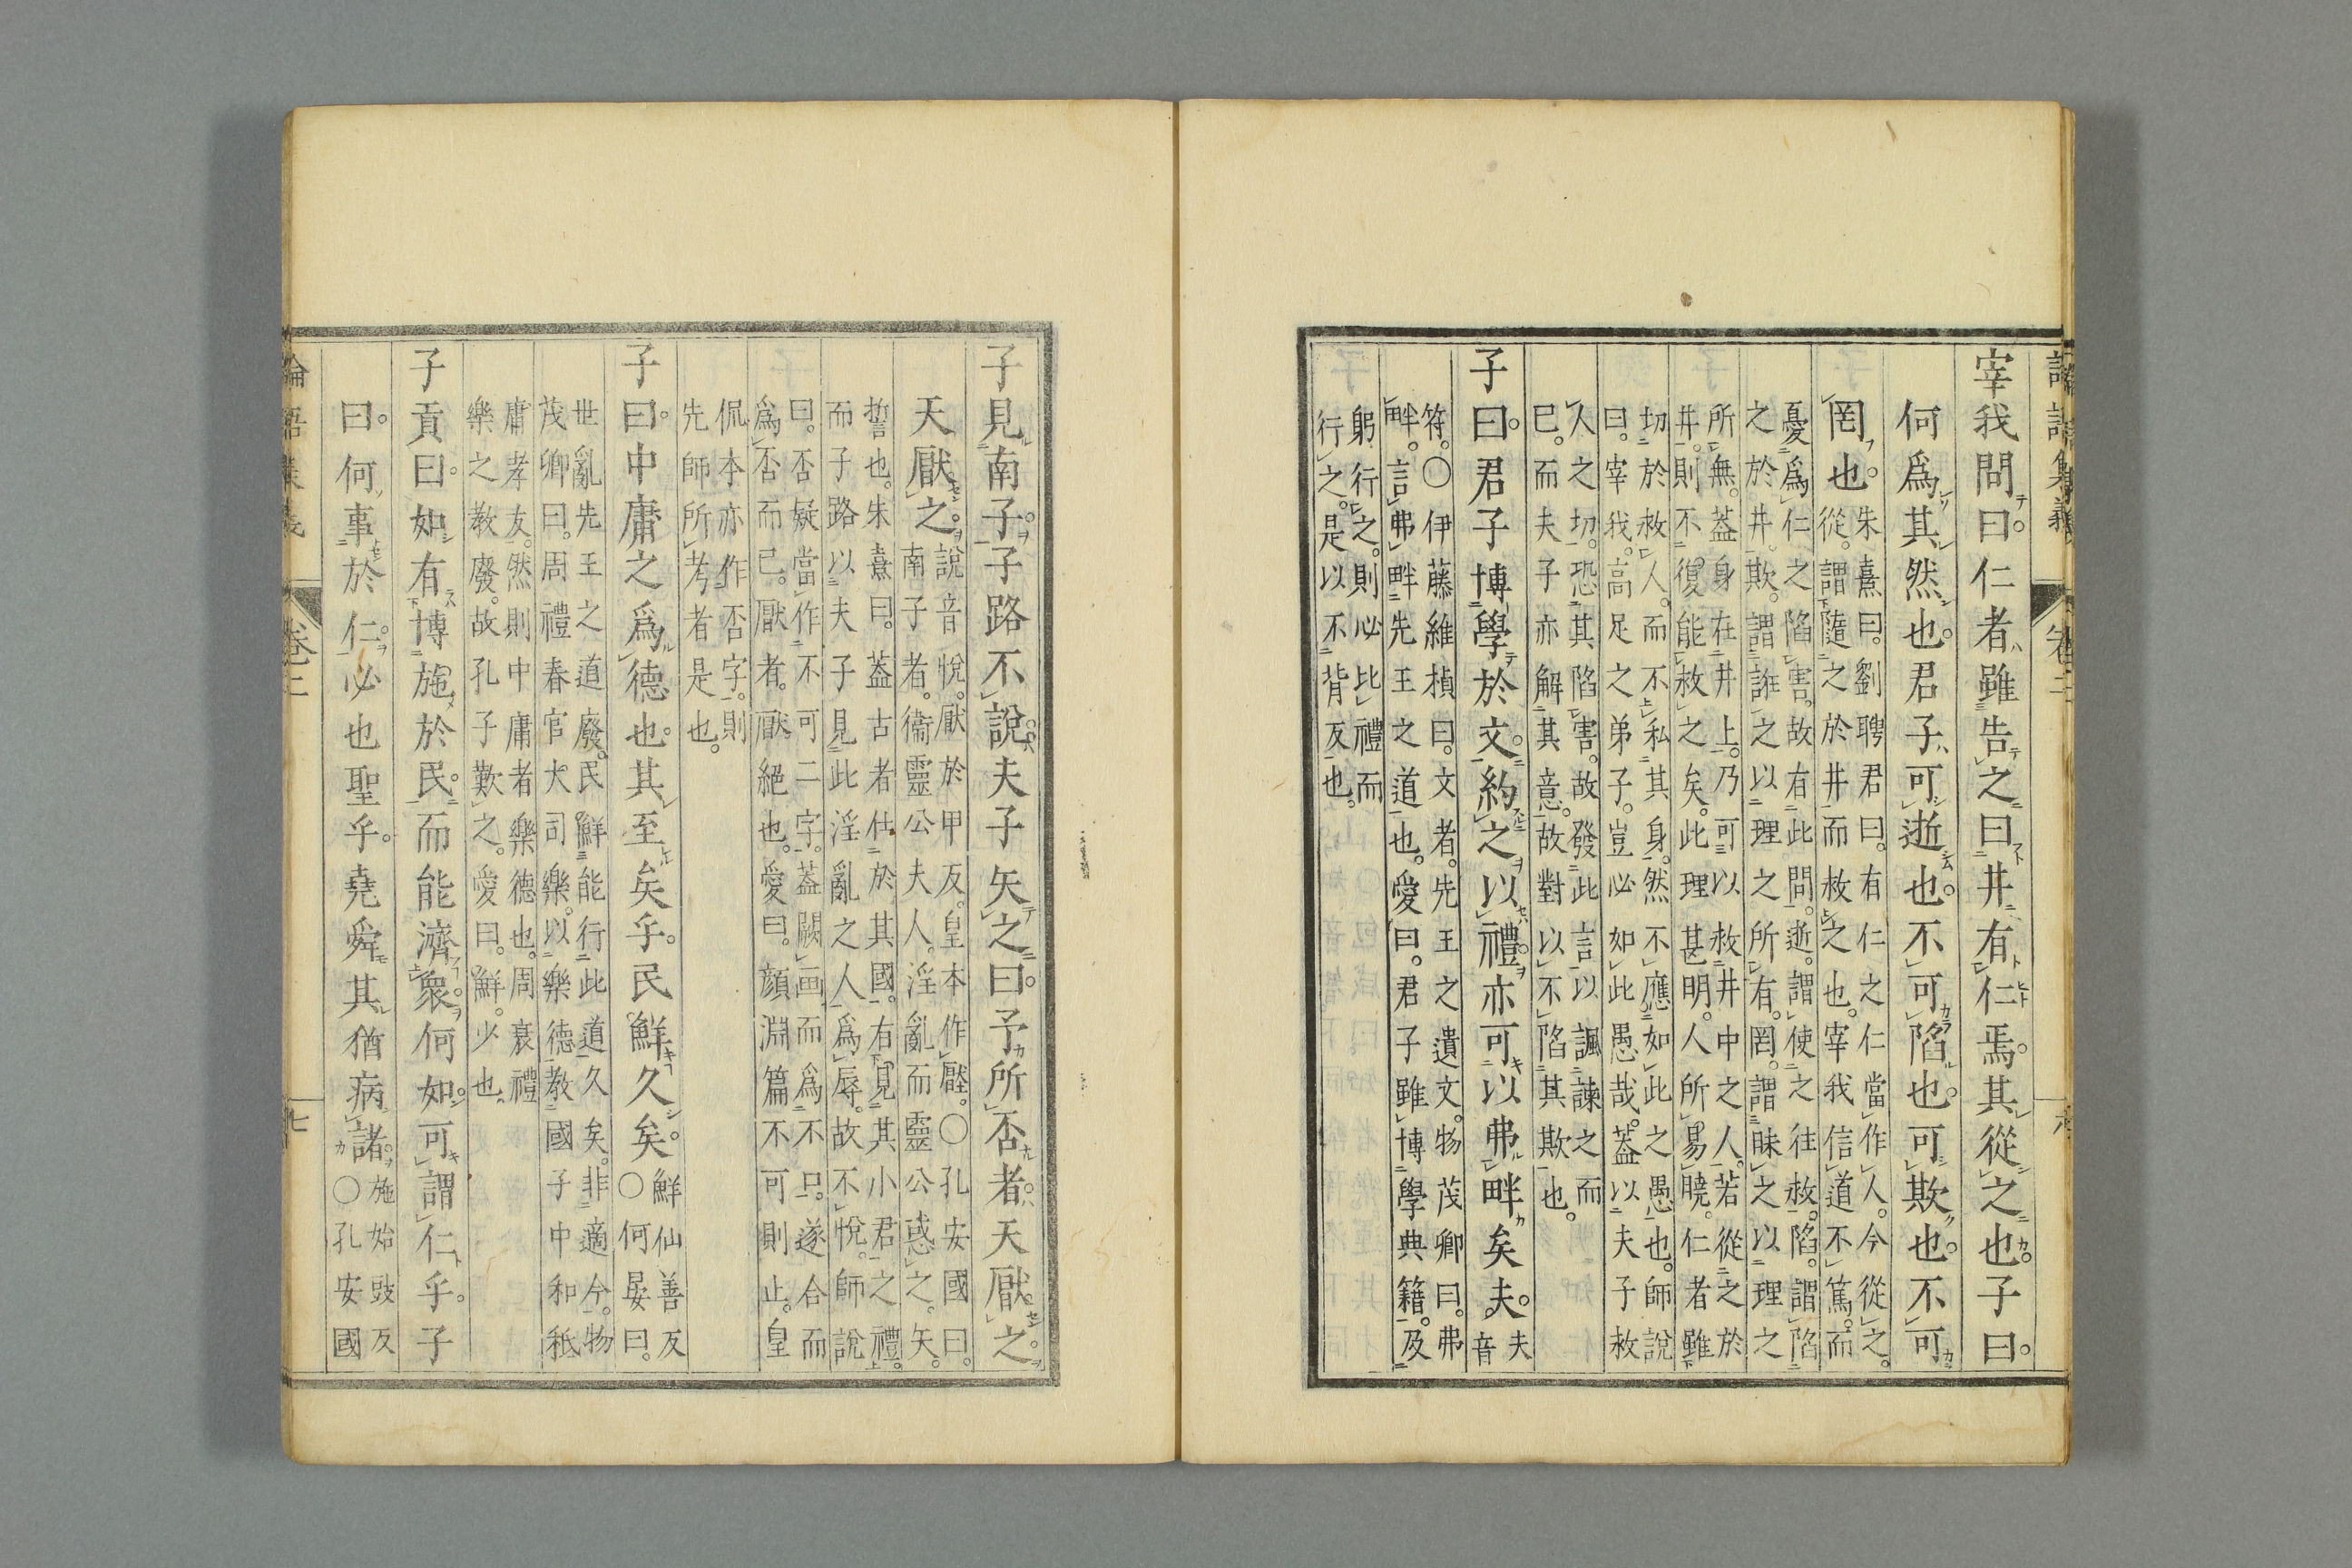 宰我問曰。仁者雖告之曰井有仁焉。其從之也。子曰。
何爲其然也。君子可逝也。不可陷也。可欺也。不可
罔也。
朱熹曰。劉聘君曰。有仁之仁當作人。今從之。
從。謂隨之於井而救之也。宰我信道不篤。而
憂爲仁之陷害。故有此問。逝。謂使之往救。陷。謂陷
之於井。欺。謂誑之以理之所有。罔。謂昧之以理之
所無。蓋身在井上。乃可以救井中之人。若從之於
井。則不復能救之矣。此理甚明。人所易曉。仁者雖
切於救人。而不私其身。然不應如此之愚也。師說
曰。宰我。高足之弟子。豈必如此愚哉。蓋以夫子救
人之切。恐其陷害。故發此言。以諷諫之。而
已。而夫子亦解其意。故對以不陷其欺也。
子曰。君子博學於文。約之以禮。亦可以弗畔矣夫。
夫音
符。○伊藤維楨曰。文者。先王之遺文。物茂卿曰。弗
畔。言弗畔先王之道也。愛曰。君子雖博學典籍。及
躬行之。則必比禮而
行之。是以不背反也。
論語集義
卷二
六
子見南子。子路不說。夫子矢之曰。予所否者。天厭之。
天厭之。
說音悅。厭於甲反。皇本作壓。○孔安國曰。
南子者。衞靈公夫人。淫亂而靈公惑之。矢。
誓也。朱熹曰。蓋古者仕於其國。有見其小君之禮。
而子路以夫子見此淫亂之人爲辱。故不悅。師說
曰。否疑當作不可二字。蓋闕画而爲不只。遂合而
爲否而已。厭者。厭絕也。愛曰。顏淵篇不可則止。皇
侃本亦作否字。則
先師所考者是也。
子曰。中庸之爲德也。其至矣乎。民鮮久矣。
鮮仙善反
○何晏曰。
世亂先王之道廢。民鮮能行此道久矣。非適今。物
茂卿曰。周禮春官大司樂。以樂德教國子中和祗
庸孝友。然則中庸者樂德也。周衰禮
樂之教廢。故孔子歎之。愛曰。鮮。少也。
子貢曰。如有博施於民。而能濟衆。何如。可謂仁乎。子
曰。何事於仁。必也聖乎。堯舜其猶病諸。
施始豉反
○孔安國
論語集義
卷二
七